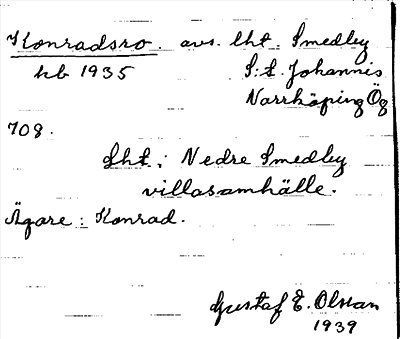 Konradsro. avs. lht. Smedby
kb 1935 S:t. Johannis
Norrköping Ög
708.
Lht; Nedre Smedby
villasamhälle.
Ägare: Konrad.
Gustaf E. Olsson
1939